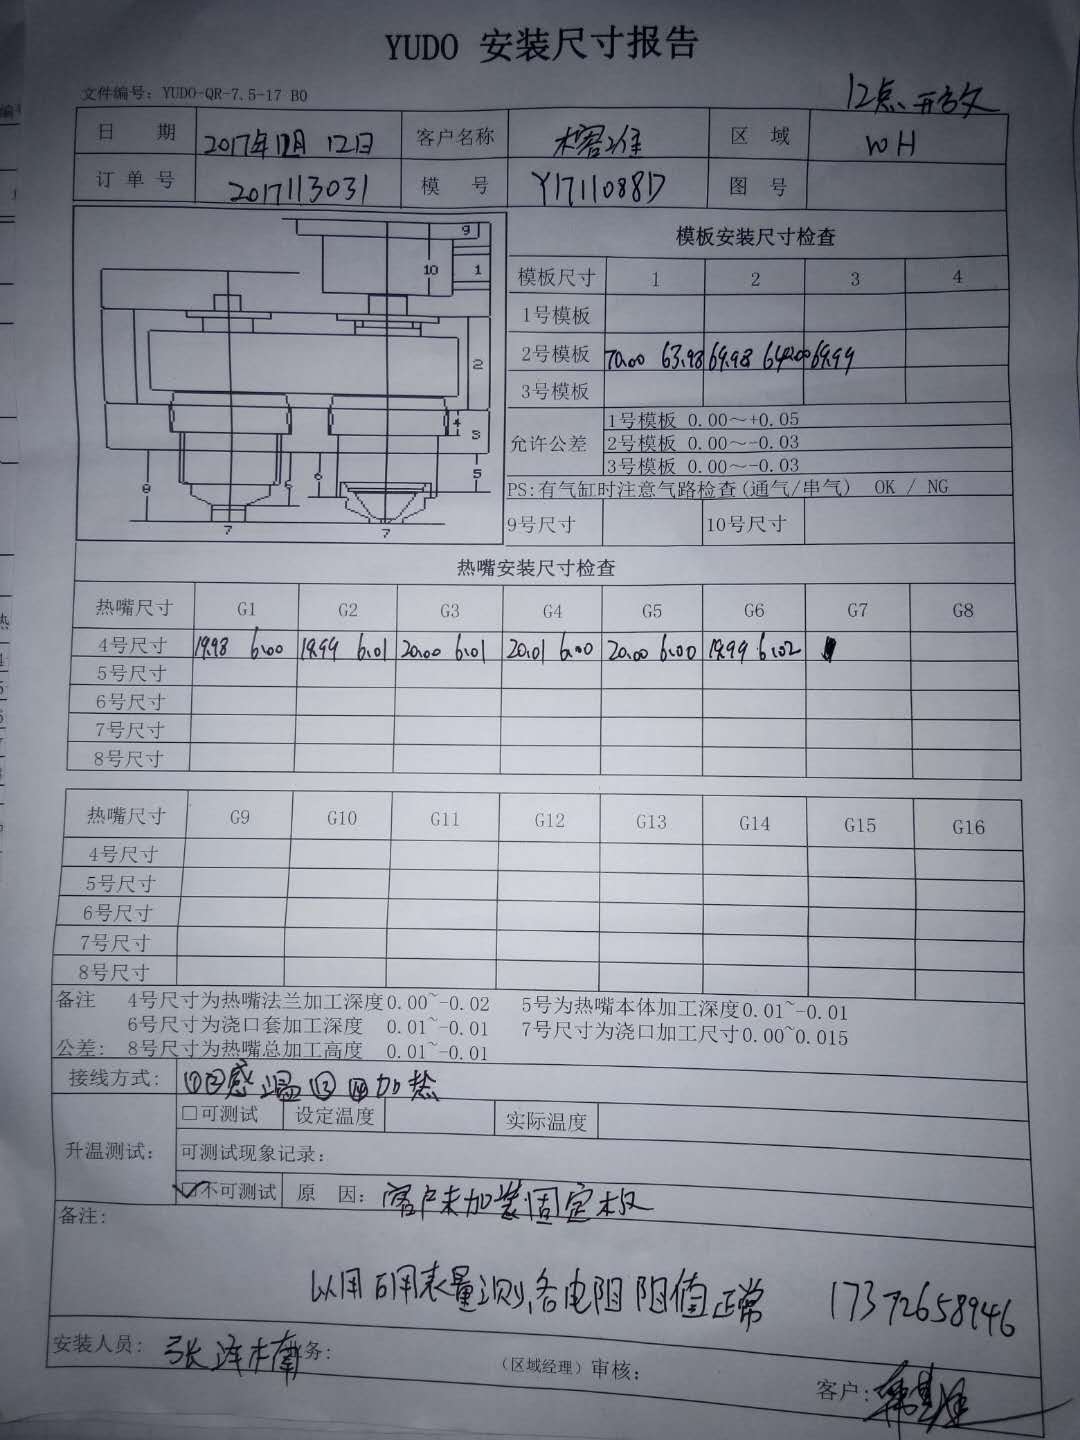 YUDO 安装尺寸报告
文件编号: YUDO-QR-7.5-17 B0
12点
日 期 2017年12月12日 客户名称 区 域 WH
订 单 号 2017113031 模 号 Y1711088D 图 号
模板安装尺寸检查
模板尺寸 1 2 3 4
1号模板
2号模板 70.00 63.98 69.98 69.99
3号模板
允许公差
1号模板 0.00～+0.05
2号模板 0.00～-0.03
3号模板 0.00～-0.03
PS:有气缸时注意气路检查(通气/串气) OK / NG
9号尺寸 10号尺寸
9
10 1
2
4 3
5
8 6 6
7 7
热嘴安装尺寸检查
热嘴尺寸 G1 G2 G3 G4 G5 G6 G7 G8
4号尺寸 19.98 6.00 19.99 6.01 20.00 6.01 20.01 6.00 20.00 6.00 19.99 6.02
5号尺寸
6号尺寸
7号尺寸
8号尺寸
热嘴尺寸 G9 G10 G11 G12 G13 G14 G15 G16
4号尺寸
5号尺寸
6号尺寸
7号尺寸
8号尺寸
备注 4号尺寸为热嘴法兰加工深度0.00~-0.02 5号为热嘴本体加工深度0.01~-0.01
6号尺寸为浇口套加工深度 0.01~-0.01 7号尺寸为浇口加工尺寸0.00~0.015
公差: 8号尺寸为热嘴总加工高度 0.01~-0.01
接线方式: ①②感温③④加热
升温测试:
□可测试 设定温度 实际温度
可测试现象记录:
☑不可测试 原 因: 客户未加装固定板
备注:
以用万用表量测,各电阻阻值正常 17372658946
安装人员: 张泽楠 业务: (区域经理)审核: 客户: